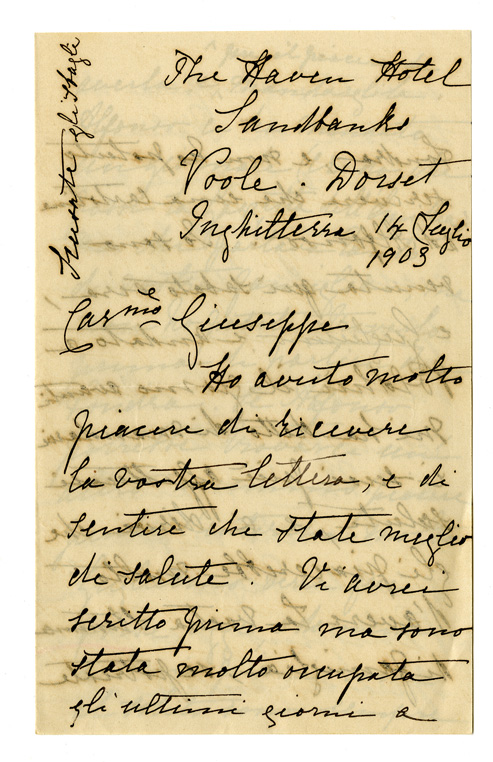 Scusate gli sbagli
The Haven Hotel
Sandbanks
Poole . Dorset
Inghilterra 14 Luglio
1903
Carmo Giuseppe
Ho avuto molto
piacere di ricevere
la vostra lettera, e di
sentire che state meglio
di salute. Vi avrei
scritto prima ma sono
stata molto occupata
gli ultimi giorni a